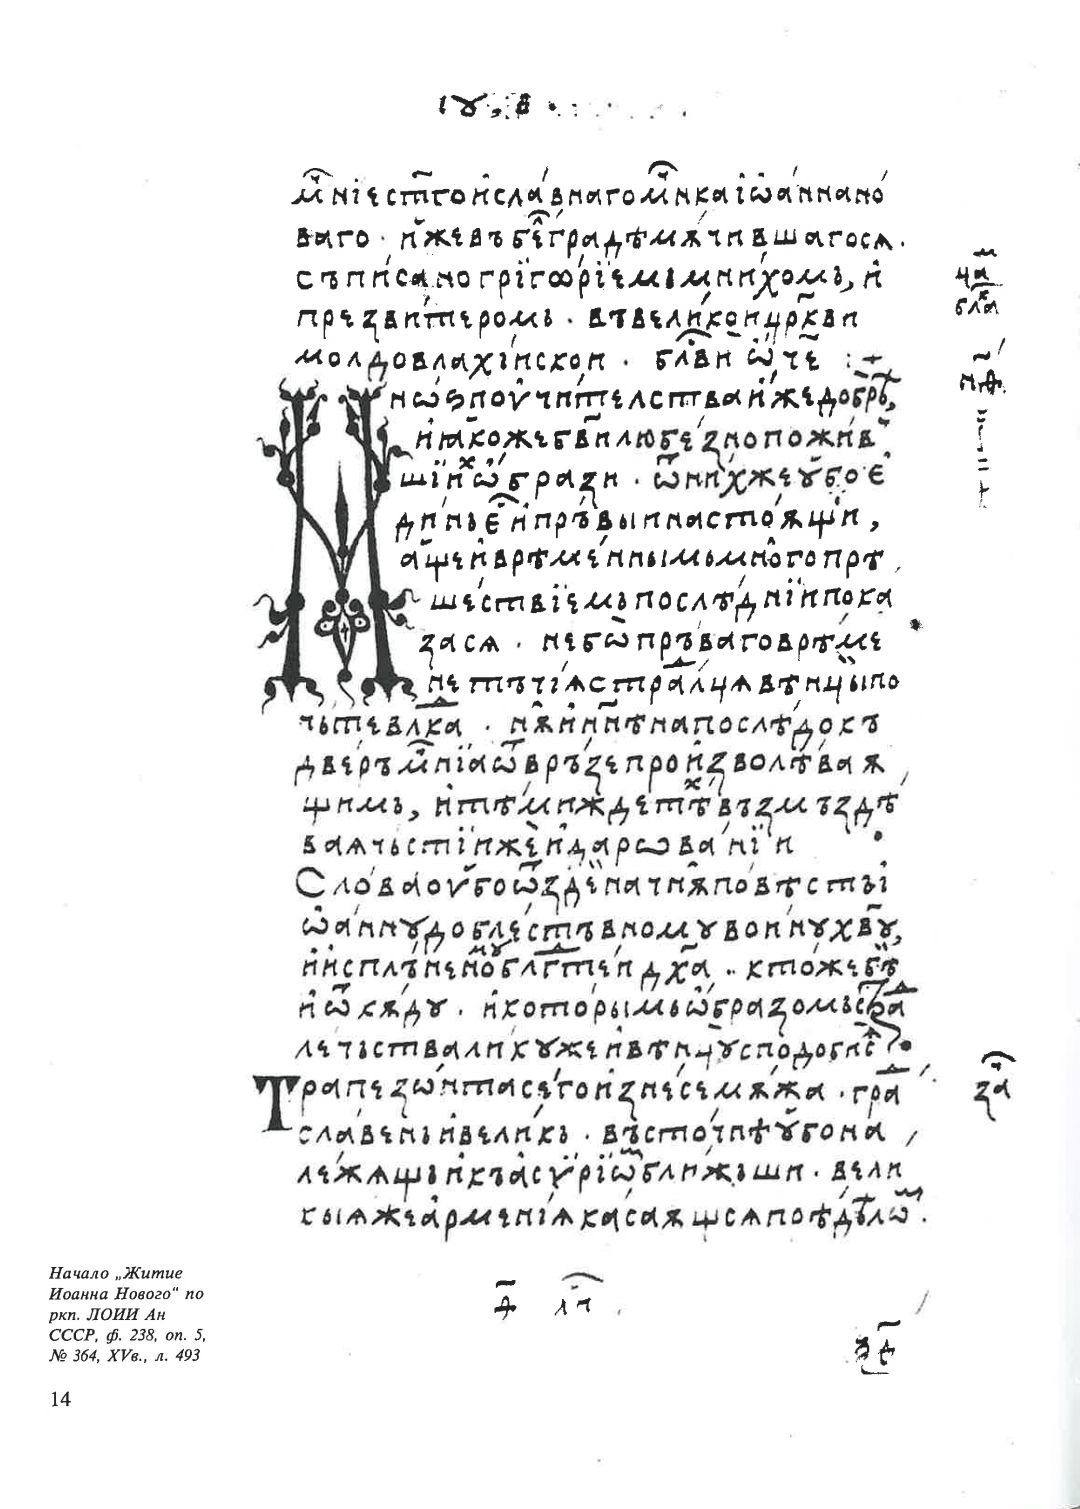 м҃нїе ст҃го и славнаго м҃нка іѡанна но
ваго · иже въ бѣ́лградѣ мѫчившагосѧ ·
съписано григѡрїемь мнихомь, и
презвитеромь · въ великои цр҃кви
молдовлахїискои · бл҃ви ѡ҃че
но ѡ поучителства иже добрѣ,
и ꙗкоже б҃ви любезно пожив
шїих ѡбрази · ѿ нихже убо е
дини е и пръвыи настоѧщїи,
аще и врѣменнымь много прѣ
шествїемь послѣднїи пока
засѧ · не бо пръваго врѣме
не тъчїѧ страдалцѧ вѣнцы по
чьте влⷣка · нѫ и нн҃ѣ на послѣдокъ
двер м҃нїа ѿвръзе произволѣваѫ
щимь, и тѣми ждетѣх възмъздѣ
ваѧ чьстїи же и дарѡванїи
Слова убо ѿ здеи начнѫ повѣсть ї
ѡанну доблестъвному воину хв҃у,
и исплъненому блгⷣти д҃ха · кто же бѣ
и ѿкѫду · и которымь ѡбразомь страⷣ
лечьства ликуже и вѣнцу сподобисѧ
Трапезѡнта сего изнесе мѫжа · граⷣ
славень и великь · въсточнѣ убо на
лежѧщь и къ асѵрїѡм ближьши · вели
кыѧ же арменїѧ касаѧщсѧ поѣдѣлѡм ·
за
Начало „Житие
Иоанна Нового“ по
ркп. ЛОИИ Ан
СССР, ф. 238, оп. 5,
№ 364, XVв., л. 493
14